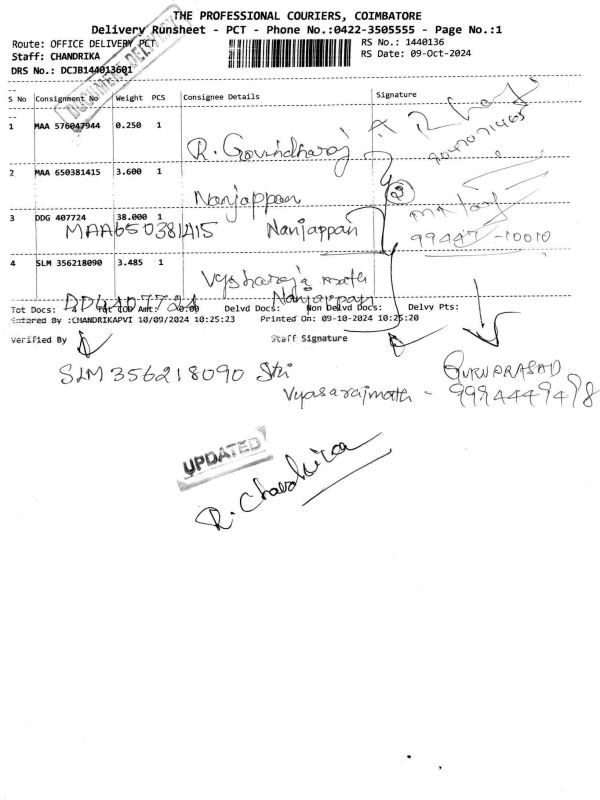 THE PROFESSIONAL COURIERS, COIMBATORE
Delivery Runsheet - PCT - Phone No.:0422-3505555 - Page No.:1
Route: OFFICE DELIVERY PCT
RS No.: 1440136
Staff: CHANDRIKA
RS Date: 09-Oct-2024
DRS No.: DCJB144013601
S No Consignment No Weight PCS Consignee Details Signature
1 MAA 576047944 0.250 1
R. Govindharaj
2 MAA 650381415 3.600 1
Nanjappan
3 DDG 407724 38.000 1
MAA650381415 Nanjappan
99447-10010
4 SLM 356218090 3.485 1
Nanjappan
Tot Docs: 4 Tot COD Amt: 0.00 Delvd Docs: Non Delvd Docs: Delvv Pts:
Entered By :CHANDRIKAPVI 10/09/2024 10:25:23 Printed On: 09-10-2024 10:25:20
Verified By Staff Signature
GURUPRASAD
SLM 356218090
Vyasarajmath - 9994449498
UPDATED
R. Chandrika